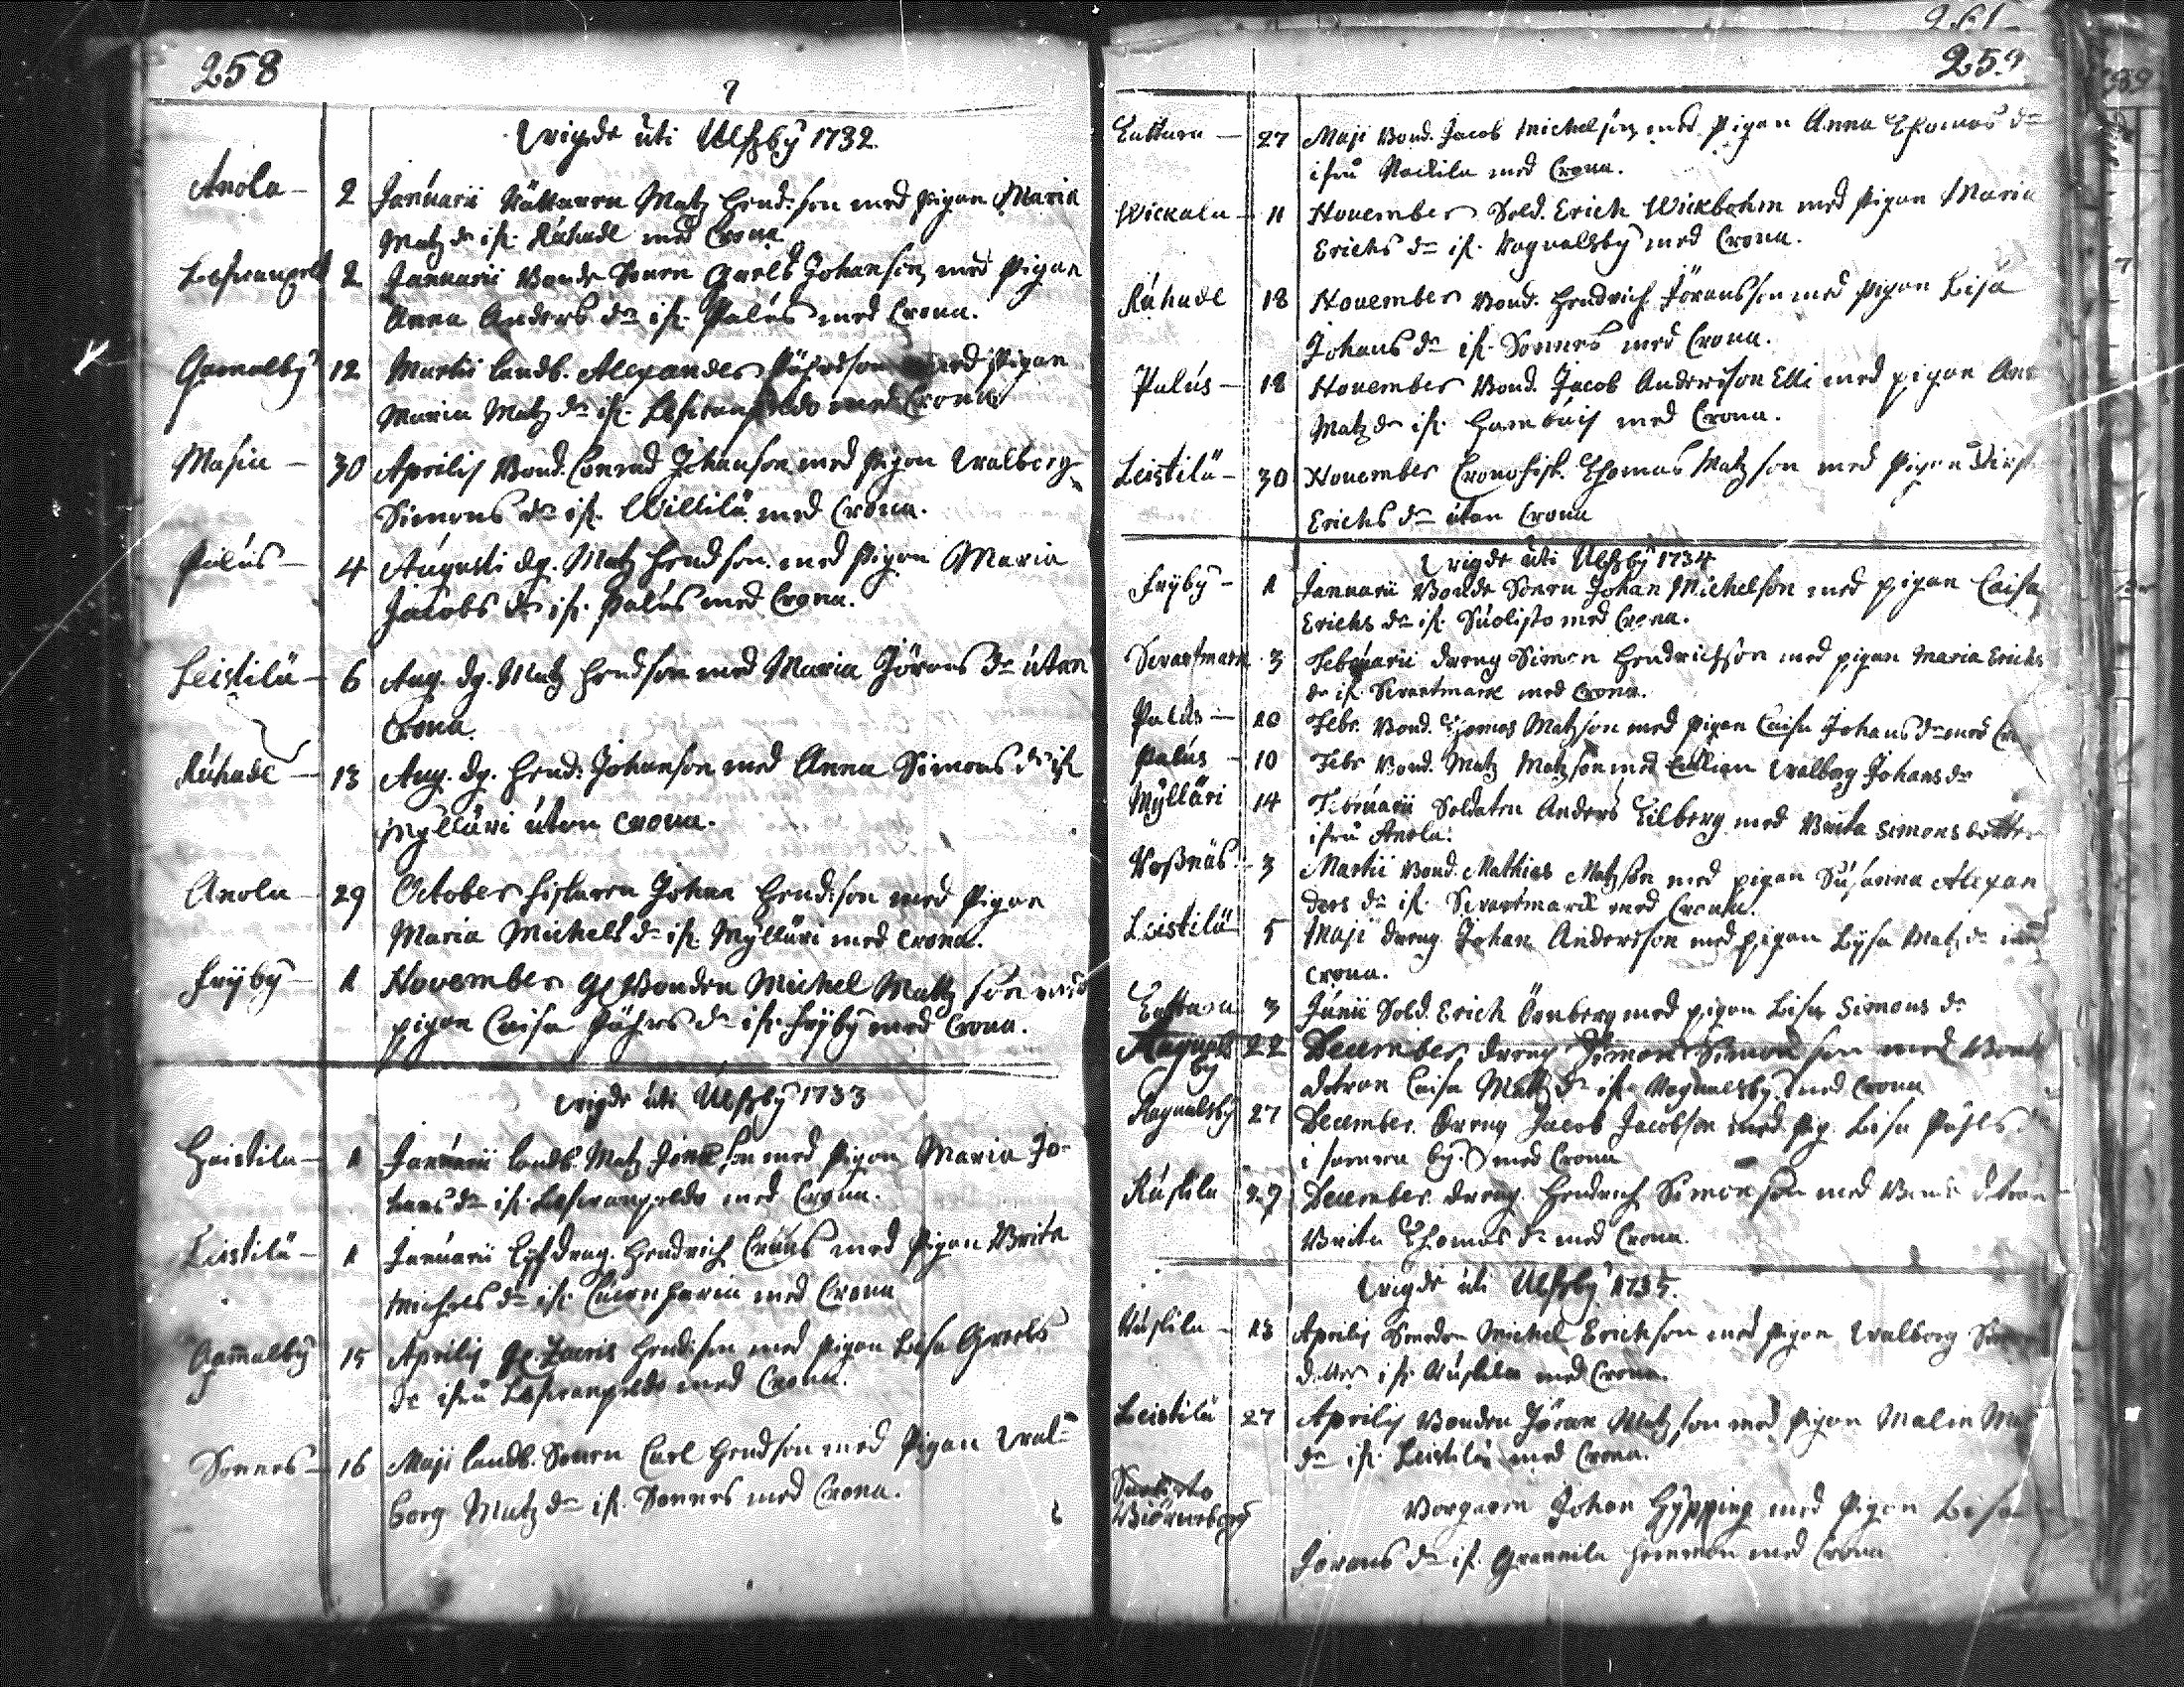 258
Vrigde uti Ulfsby 1732
Anola - 2 Januarii Rättaren Matz Hend:son med Pigan Maria
Matz dr if. Ruhade med Crona
Lefwanpeld 2 Januarii Bonde Sonen Grels Johanson med Pigan
Anna Anders dr if. Palus med Crona.
Gamalby 12 Martii landb. Alexander Påhlsson med Pigan
Maria Matz dr if. Lefwanpeldo med Crona
Masia - 30 Aprilis Bond. Conrad Johanson med Pigan Walborg
Simons dr if. Willilä med Crona.
Palus - 4 Augusti dg. Matz Hendson med Pigan Maria
Jacobs dr if. Palus med Crona.
Leistilä - 6 Aug. dg. Matz Hendson med Maria Jörans dr utan
Crona.
Ruhade - 13 Aug. dg. Hend: Johanson med Anna Simons dr if
Mylläri utan Crona.
Anola - 29 October fiskaren Johan Hend:son med Pigan
Maria Michels dr if. Mylläri med Crona.
Fryby - 1 November Gl. Bonden Michel Mattzson med
pigan Caisa Påhls dr if. Fryby med Crona.
Vrigde uti Ulfsby 1733
Haistila - 1 Januarii landb. Matz son med Pigan Maria Jo-
hans dr if. Lefwanpeldo med Crona.
Leistilä - 1 Januarii Lyfdrag. Hendrich Cruus med Pigan Brita
Michels dr if. med Crona
Gammalby 15 Aprilis Gl. Zacris Hend:son med pigan Lisa Grels
dr ifrå Lefwanpeldo med Crona.
Sonnes - 16 Maji landb. Sonen Carl Hendson med Pigan Wal-
borg Matz dr if. Sonnes med Crona.
261
259
Lattura - 27 Maji Bond. Jacob Michelson med Pigan Anna Thomas dr
ifrå Nackila med Crona.
Wickala - 11 November Sold. Erich Wickbohm med Pigan Maria
Erichs dr if. Ragnalsby med Crona.
Ruhade 18 November Bond. Hendrich Jöransson med Pigan Lisa
Johans dr if. Sonnes med Crona.
Palus - 18 November Bond. Jacob Anderson Elli med pigan
Matz dr if. Hambuis med Crona.
Leistilä - 30 November Cronofisk. Thomas Matzson med Pigan
Erichs dr utan Crona
Vrigde uti Ulfsby 1734
Fryby - 1 Januarii Bonde Sonen Johan Michelson med pigan Caisa
Erichs dr if. Suolisto med Crona.
Swartmark 3 Februarii dreng Simon Hendrichson med pigan Maria Erichs
dr if. Swartmark med Crona.
Palus - 10 Febr. Bond. Thomas Matzson med pigan Caisa Johans dr med
Palus - 10 Febr Bond. Matz Matzson med Walborg Johans dr
Mylläri 14 Februarii Soldaten Anders Eilberg med Brita Simonsdotter
ifrå Anola.
Roßnäs - 3 Martii Bond. Mathias Matzson med pigan Susanna Alexan
ders dr if. Swartmark med Crona.
Leistilä 5 Maji dreng Johan Andersson med pigan Lysa Matz dr med
Crona.
Lattura 3 Junii Sold. Erich Örnberg med pigan Lisa Simons dr
Ragnals
by 22 December dreng Simon Simonson med Bond
dotran Caisa Mattz dr if. Ragnalsby med Crona
Ragnalsby 27 December. Dreng Jacob Jacobson med Pig. Lisa Påhls
i samma by. med Crona
Rusfila 27 December dreng. Hendrich Simonson med Bonde dotran
Brita Thomas dr med Crona.
Vrigde uti Ulfsby 1735.
13 Aprilis Smeden Michel Erickson med pigan Walborg
dotter if. med Crona.
Leistilä 27 Aprilis Bonden Jöran Matzson med Pigan Malin
dr if. Leistilä med Crona.
Suolisto
Biörneborg Borgaren Johan Hypping med Pigan Lisa
Jörans dr if. Grannila hemman med Crona